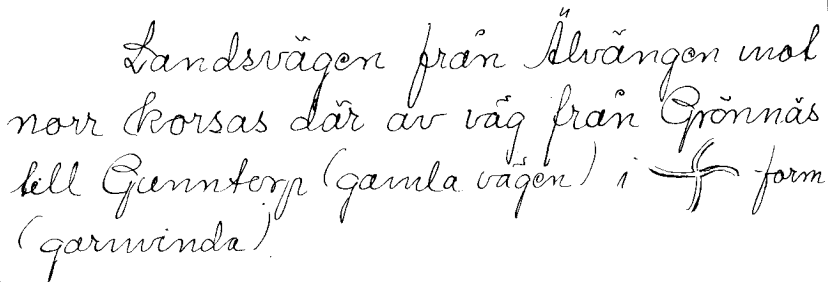 Landsvägen från Älvängen mot
norr korsas där av väg från Grönnäs
till Gunntorp (gamla vägen) i form
(garnvinda)